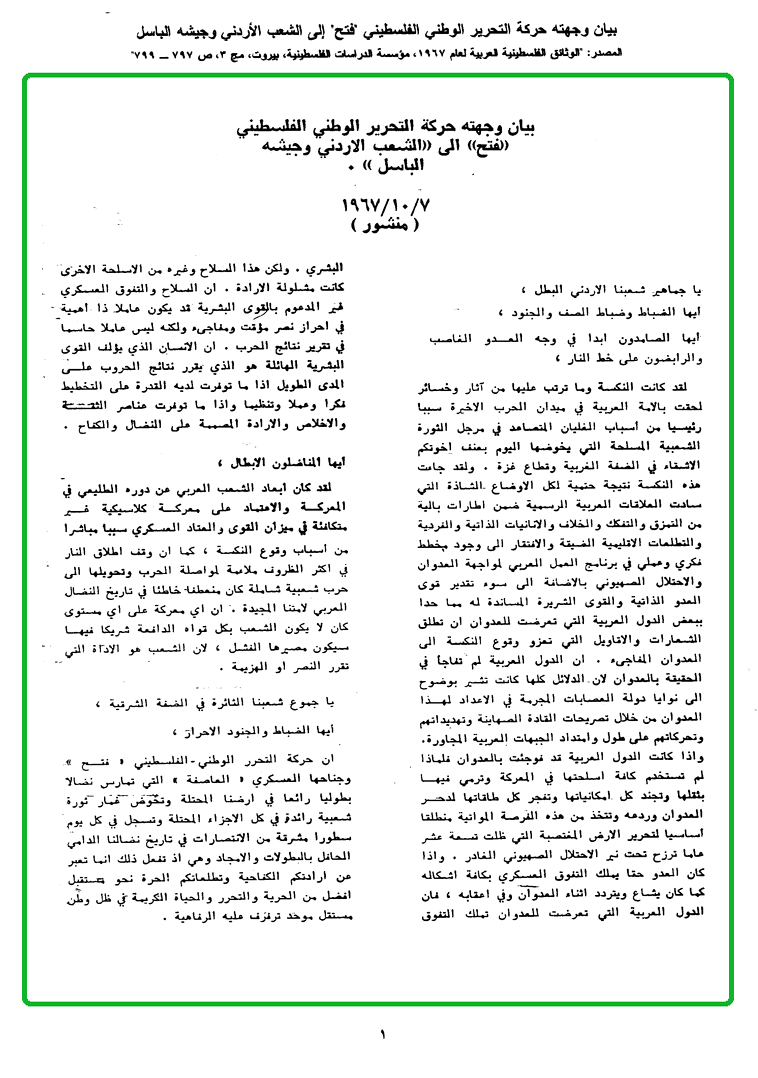 بيان وجهته حركة التحرير الوطني الفلسطيني "فتح" إلى الشعب الأردني وجيشه الباسل
المصدر: "الوثائق الفلسطينية العربية لعام ١٩٦٧، مؤسسة الدراسات الفلسطينية، بيروت، مج ٣، ص ٧٩٧ ــ ٧٩٩"
بيان وجهته حركة التحرير الوطني الفلسطيني
((فتح)) الى ((الشعب الاردني وجيشه
الباسل )) ٠
١٩٦٧/١٠/٧
( منشور )
يا جماهير شعبنا الاردني البطل ،
أيها الضباط وضباط الصف والجنود ،
أيها الصامدون ابدا في وجه العدو الغاصب
والرابضون على خط النار ،
لقد كانت النكسة وما ترتب عليها من آثار وخسائر
لحقت بالامة العربية في ميدان الحرب الاخيرة سببا
رئيسيا من أسباب الغليان المتصاعد في مرجل الثورة
الشعبية المسلحة التي يخوضها اليوم بعنف إخوتكم
الاشقاء في الضفة الغربية وقطاع غزة . ولقد جاءت
هذه النكسة نتيجة حتمية لكل الاوضاع الشاذة التي
سادت العلاقات العربية الرسمية ضمن اطارات بالية
من التمزق والتفكك والخلاف والانانيات الذاتية والفردية
والتطلعات الاقليمية الضيقة والافتقار الى وجود مخطط
فكري وعملي في برنامج العمل العربي لمواجهة العدوان
والاحتلال الصهيوني بالاضافة الى سوء تقدير قوى
العدو الذاتية والقوى الشريرة المساندة له مما حدا
ببعض الدول العربية التي تعرضت للعدوان ان تطلق
الشعارات والاقاويل التي تعزو وقوع النكسة الى
العدوان المفاجىء . ان الدول العربية لم تفاجأ في
الحقيقة بالعدوان لان الدلائل كلها كانت تشير بوضوح
الى نوايا دولة العصابات المجرمة في الاعداد لهذا
العدوان من خلال تصريحات القادة الصهاينة وتهديداتهم
وتحركاتهم على طول وامتداد الجبهات العربية المجاورة.
واذا كانت الدول العربية قد فوجئت بالعدوان فلماذا
لم تستخدم كافة اسلحتها في المعركة وترمي فيها
بثقلها وتجند كل امكانياتها وتفجر كل طاقاتها لدحر
العدوان وردعه وتتخذ من هذه الفرصة المواتية منطلقا
أساسيا لتحرير الارض المغتصبة التي ظلت تسعة عشر
عاما ترزح تحت نير الاحتلال الصهيوني الغادر . واذا
كان العدو حقا يملك التفوق العسكري بكافة اشكاله
كما كان يشاع ويتردد اثناء العدوان وفي اعقابه ، فان
الدول العربية التي تعرضت للعدوان تملك التفوق
البشري . ولكن هذا السلاح وغيره من الاسلحة الاخرى
كانت مشلولة الارادة . ان السلاح والتفوق العسكري
غير المدعوم بالقوى البشرية قد يكون عاملا ذا أهمية
في احراز نصر مؤقت ومفاجىء ولكنه ليس عاملا حاسما
في تقرير نتائج الحرب . ان الانسان الذي يؤلف القوى
البشرية الهائلة هو الذي يقرر نتائج الحروب على
المدى الطويل اذا ما توفرت لديه القدرة على التخطيط
فكرا وعملا وتنظيما واذا ما توفرت عناصر الثقة
والاخلاص والارادة المصممة على النضال والكفاح .
أيها المناضلون الابطال ،
لقد كان أبعاد الشعب العربي عن دوره الطليعي في
المعركة والاعتماد على معركة كلاسيكية غير
متكافئة في ميزان القوى والعتاد العسكري سببا مباشرا
من أسباب وقوع النكسة ، كما ان وقف اطلاق النار
في اكثر الظروف ملاءمة لمواصلة الحرب وتحويلها الى
حرب شعبية شاملة كان منعطفا خاطئا في تاريخ النضال
العربي لامتنا المجيدة . ان اي معركة على اي مستوى
كان لا يكون الشعب بكل قواه الدافعة شريكا فيها
سيكون مصيرها الفشل ، لان الشعب هو الاداة التي
تقرر النصر او الهزيمة .
يا جموع شعبنا الثائرة في الضفة الشرقية ،
أيها الضباط والجنود الاحرار ،
ان حركة التحرر الوطني-الفلسطيني « فتح »
وجناحها العسكري « العاصفة » التي تمارس نضالا
بطوليا رائعا في ارضنا المحتلة وتخوض غمار ثورة
شعبية رائدة في كل الاجزاء المحتلة وتسجل في كل يوم
سطورا مشرقة من الانتصارات في تاريخ نضالنا الدامي
الحافل بالبطولات والامجاد وهي اذ تفعل ذلك انما تعبر
عن ارادتكم الكفاحية وتطلعاتكم الحرة نحو مستقبل
افضل من الحرية والتحرر والحياة الكريمة في ظل وطن
مستقل موحد ترفرف عليه الرفاهية .
١